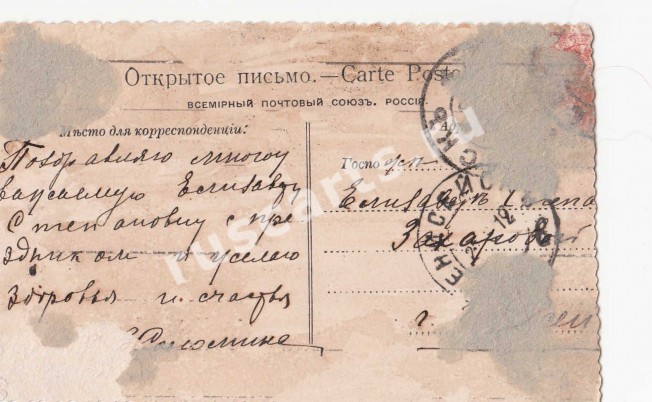 Открытое письмо.—Carte Posta
ВСЕМІРНЫЙ ПОЧТОВЫЙ СОЮЗЪ. РОССІЯ.
Мѣсто для корреспонденціи:
Поздравляю много
уважаемую Елисавету
Степановну с пра
здником и желаю
здоровья и счастья
Госпо
Елисаветѣ Степа
Захаровой
г.
ruscarts.ru